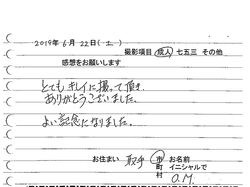 2019年 6月 22日(土)
撮影項目 成人 七五三 その他
感想をお願いします
とてもキレイに撮って頂き
ありがとうございました。
よい記念になりました。
お住まい 取手 市 お名前
町 イニシャルで
村 O.M.